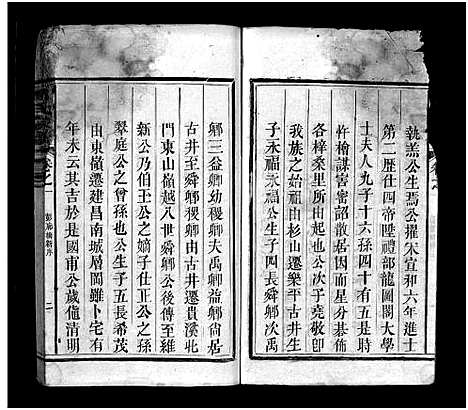 執羔公生焉公擢宋宣和六年進士
第二歷仕四帝陞禮部龍圖閣大學
士夫人九子十六孫四十有五是時
忤檜謀害密詔散居因而星分碁佈
各梓桑里所由起也公次子堯敬卽
我族之始祖由杉山遷樂平古井生
子永福永福公生子四長舜鄉次禹
鄉三益鄉幼稷鄉夫禹鄉益鄉尙居
古井至舜鄉稷鄉由古井遷貴溪北
門東山嶺越八世舜鄉公後傳至維
新公乃伯玉公之嫡子仕正公之孫
翠庭公之曾孫也公生子五長希茂
由東嶺遷建昌南城層閣雖卜宅有
年未云其吉於是國甫公歲値清明
卷之一
二